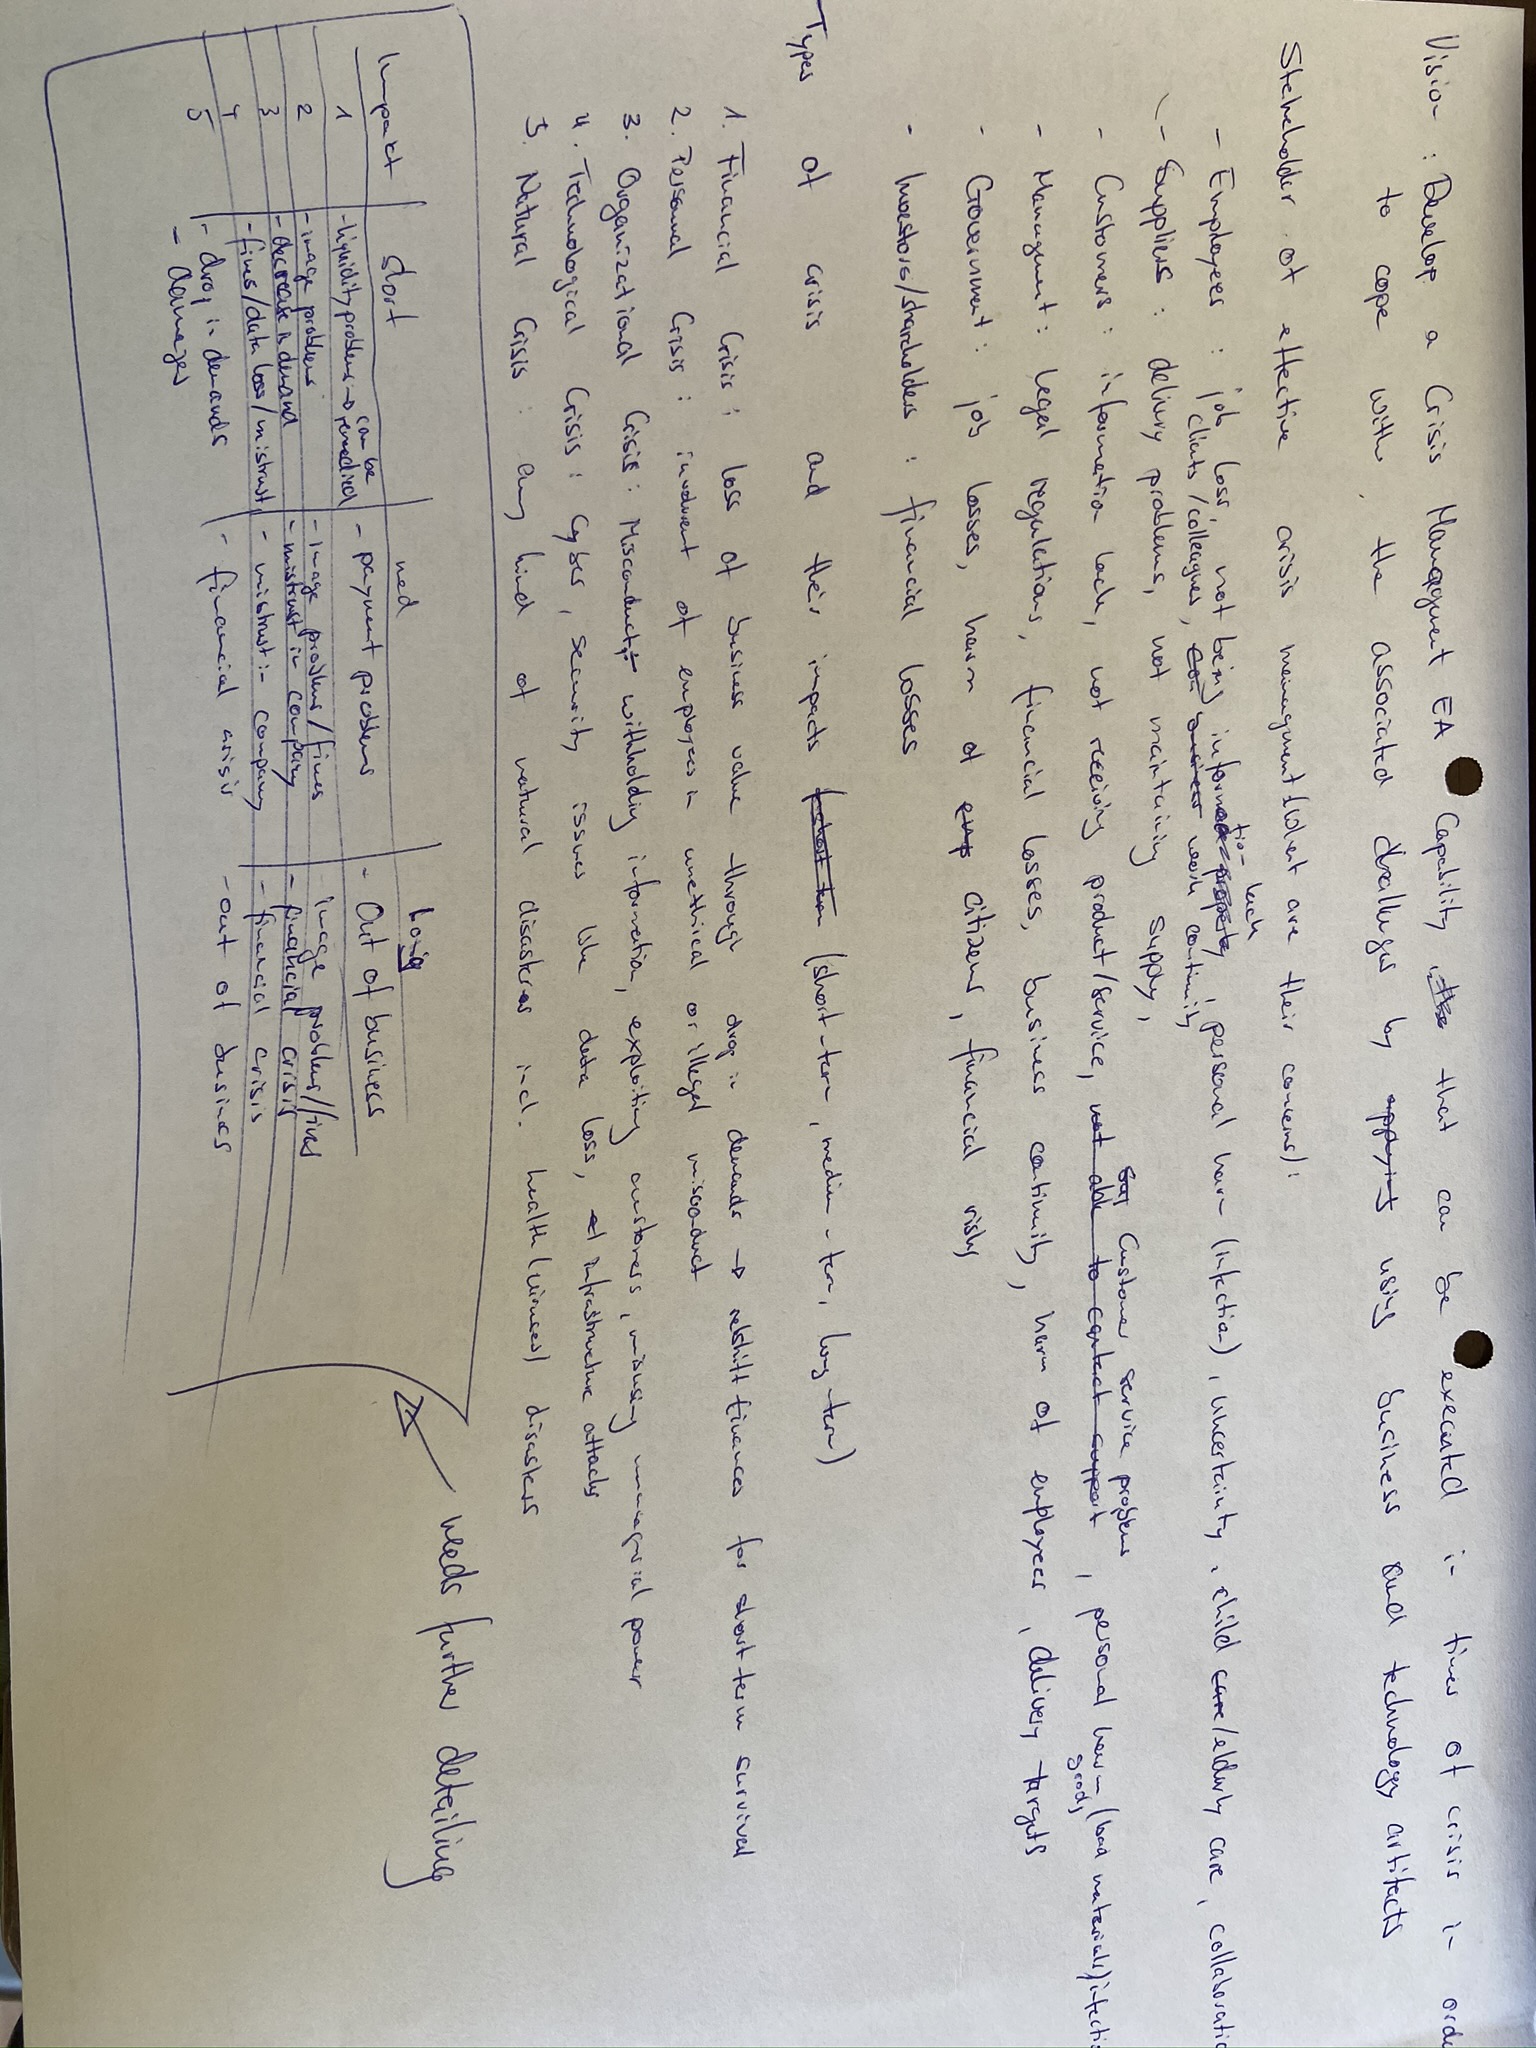 Vision : Develop a Crisis Managment EA Capability that can be executed in times of crisis in orde
to cope with the associated challenges by using business and technology artifacts
Stakeholder of effective crisis managment (what are their concerns):
- Employees : job loss, not being information lack, personal harm (infection), uncertainty, child care/elderly care, collaboratio
clients/colleagues, work continuity
- Suppliers : delivery problems, not maintaining supply,
- Customers : information lack, not receiving product/service, Customer service problems, personal harm (bad materials/infecti
goods
- Managment : legal regulations, financial losses, business continuity, harm of employees, delivery targets
- Government : job losses, harm of citizens, financial risks
- Investors/shareholders : financial losses
Types of crisis and their impacts (short-term, medium-term, long-term)
1. Financial Crisis : loss of business value through drop in demands → reshift finances for short term survival
2. Personal Crisis : involvment of employees in unethical or illegal misconduct
3. Organizational Crisis : Misconduct, withholding information, exploiting customers, misusing managerial power
4. Technological Crisis : Cyber, security issues like data loss, infrastructure attacks
5. Natural Crisis : any kind of natural disasters incl. health (viruses) disasters
Impact short med long
1 - liquidity problems → can be remedied - payment problems - Out of business
2 - image problems - image problems/fines image problems/fines
- decrease in demand - mistrust in company - financial crisis
3 - fines/data loss/mistrust - mistrust in company - financial crisis
4 - drop in demands - financial crisis - out of busines
5 - damages
needs further detailing